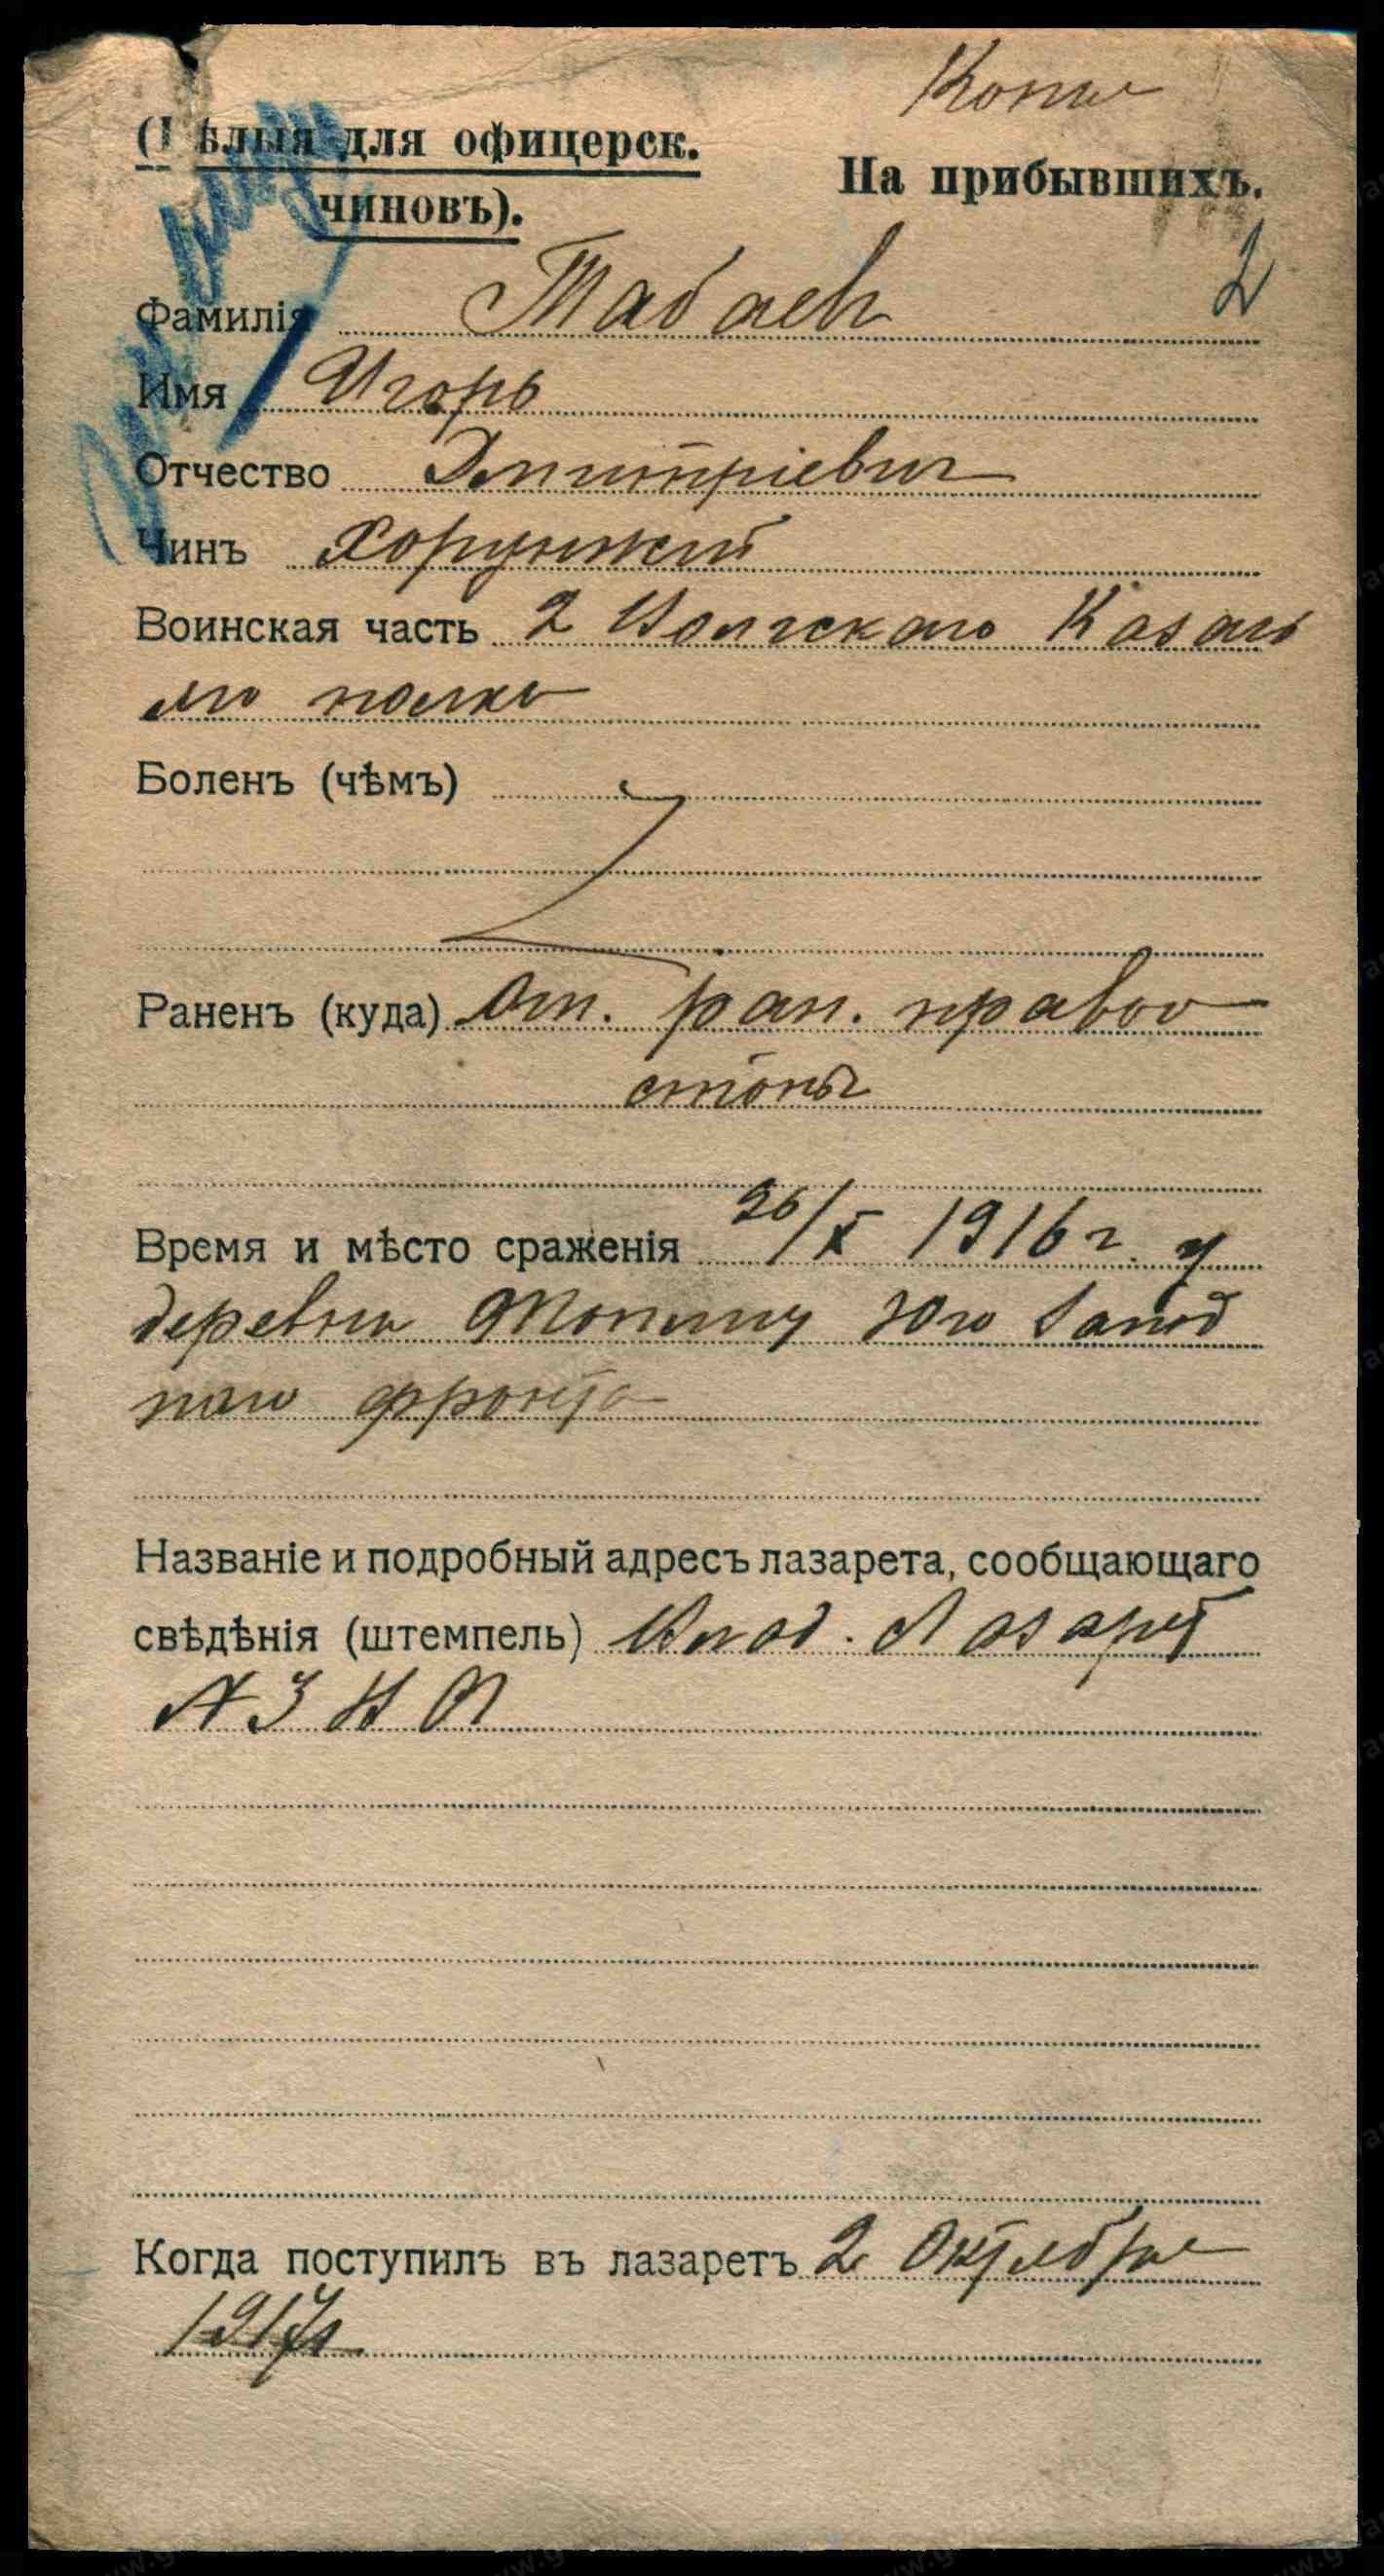 Копія
(Бѣлыя для офицерск.
чиновъ).
На прибывшихъ.
2
Фамилія Табаевъ
Имя Игорь
Отчество Дмитріевич
Чинъ Хорунжій
Воинская часть 2 Волгскаго Казачь
яго полка
Боленъ (чѣмъ)
Раненъ (куда) Ог. ран. правой
стопы
Время и мѣсто сраженія 26/X 1916 г. у
деревни Юго Запад
наго фронта
Названіе и подробный адресъ лазарета, сообщающаго
свѣдѣнія (штемпель) Влад. Лазарет
№ 3
Когда поступилъ въ лазаретъ 2 Октября
1917г